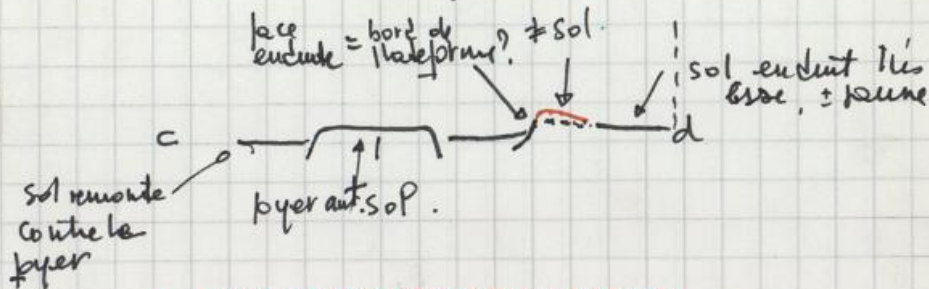 face
enduite = bord de
plateforme? ≠ sol.
sol enduit très
lisse, ± jaune
c
d
sol remonte
contre le
foyer
foyer ant. sol.